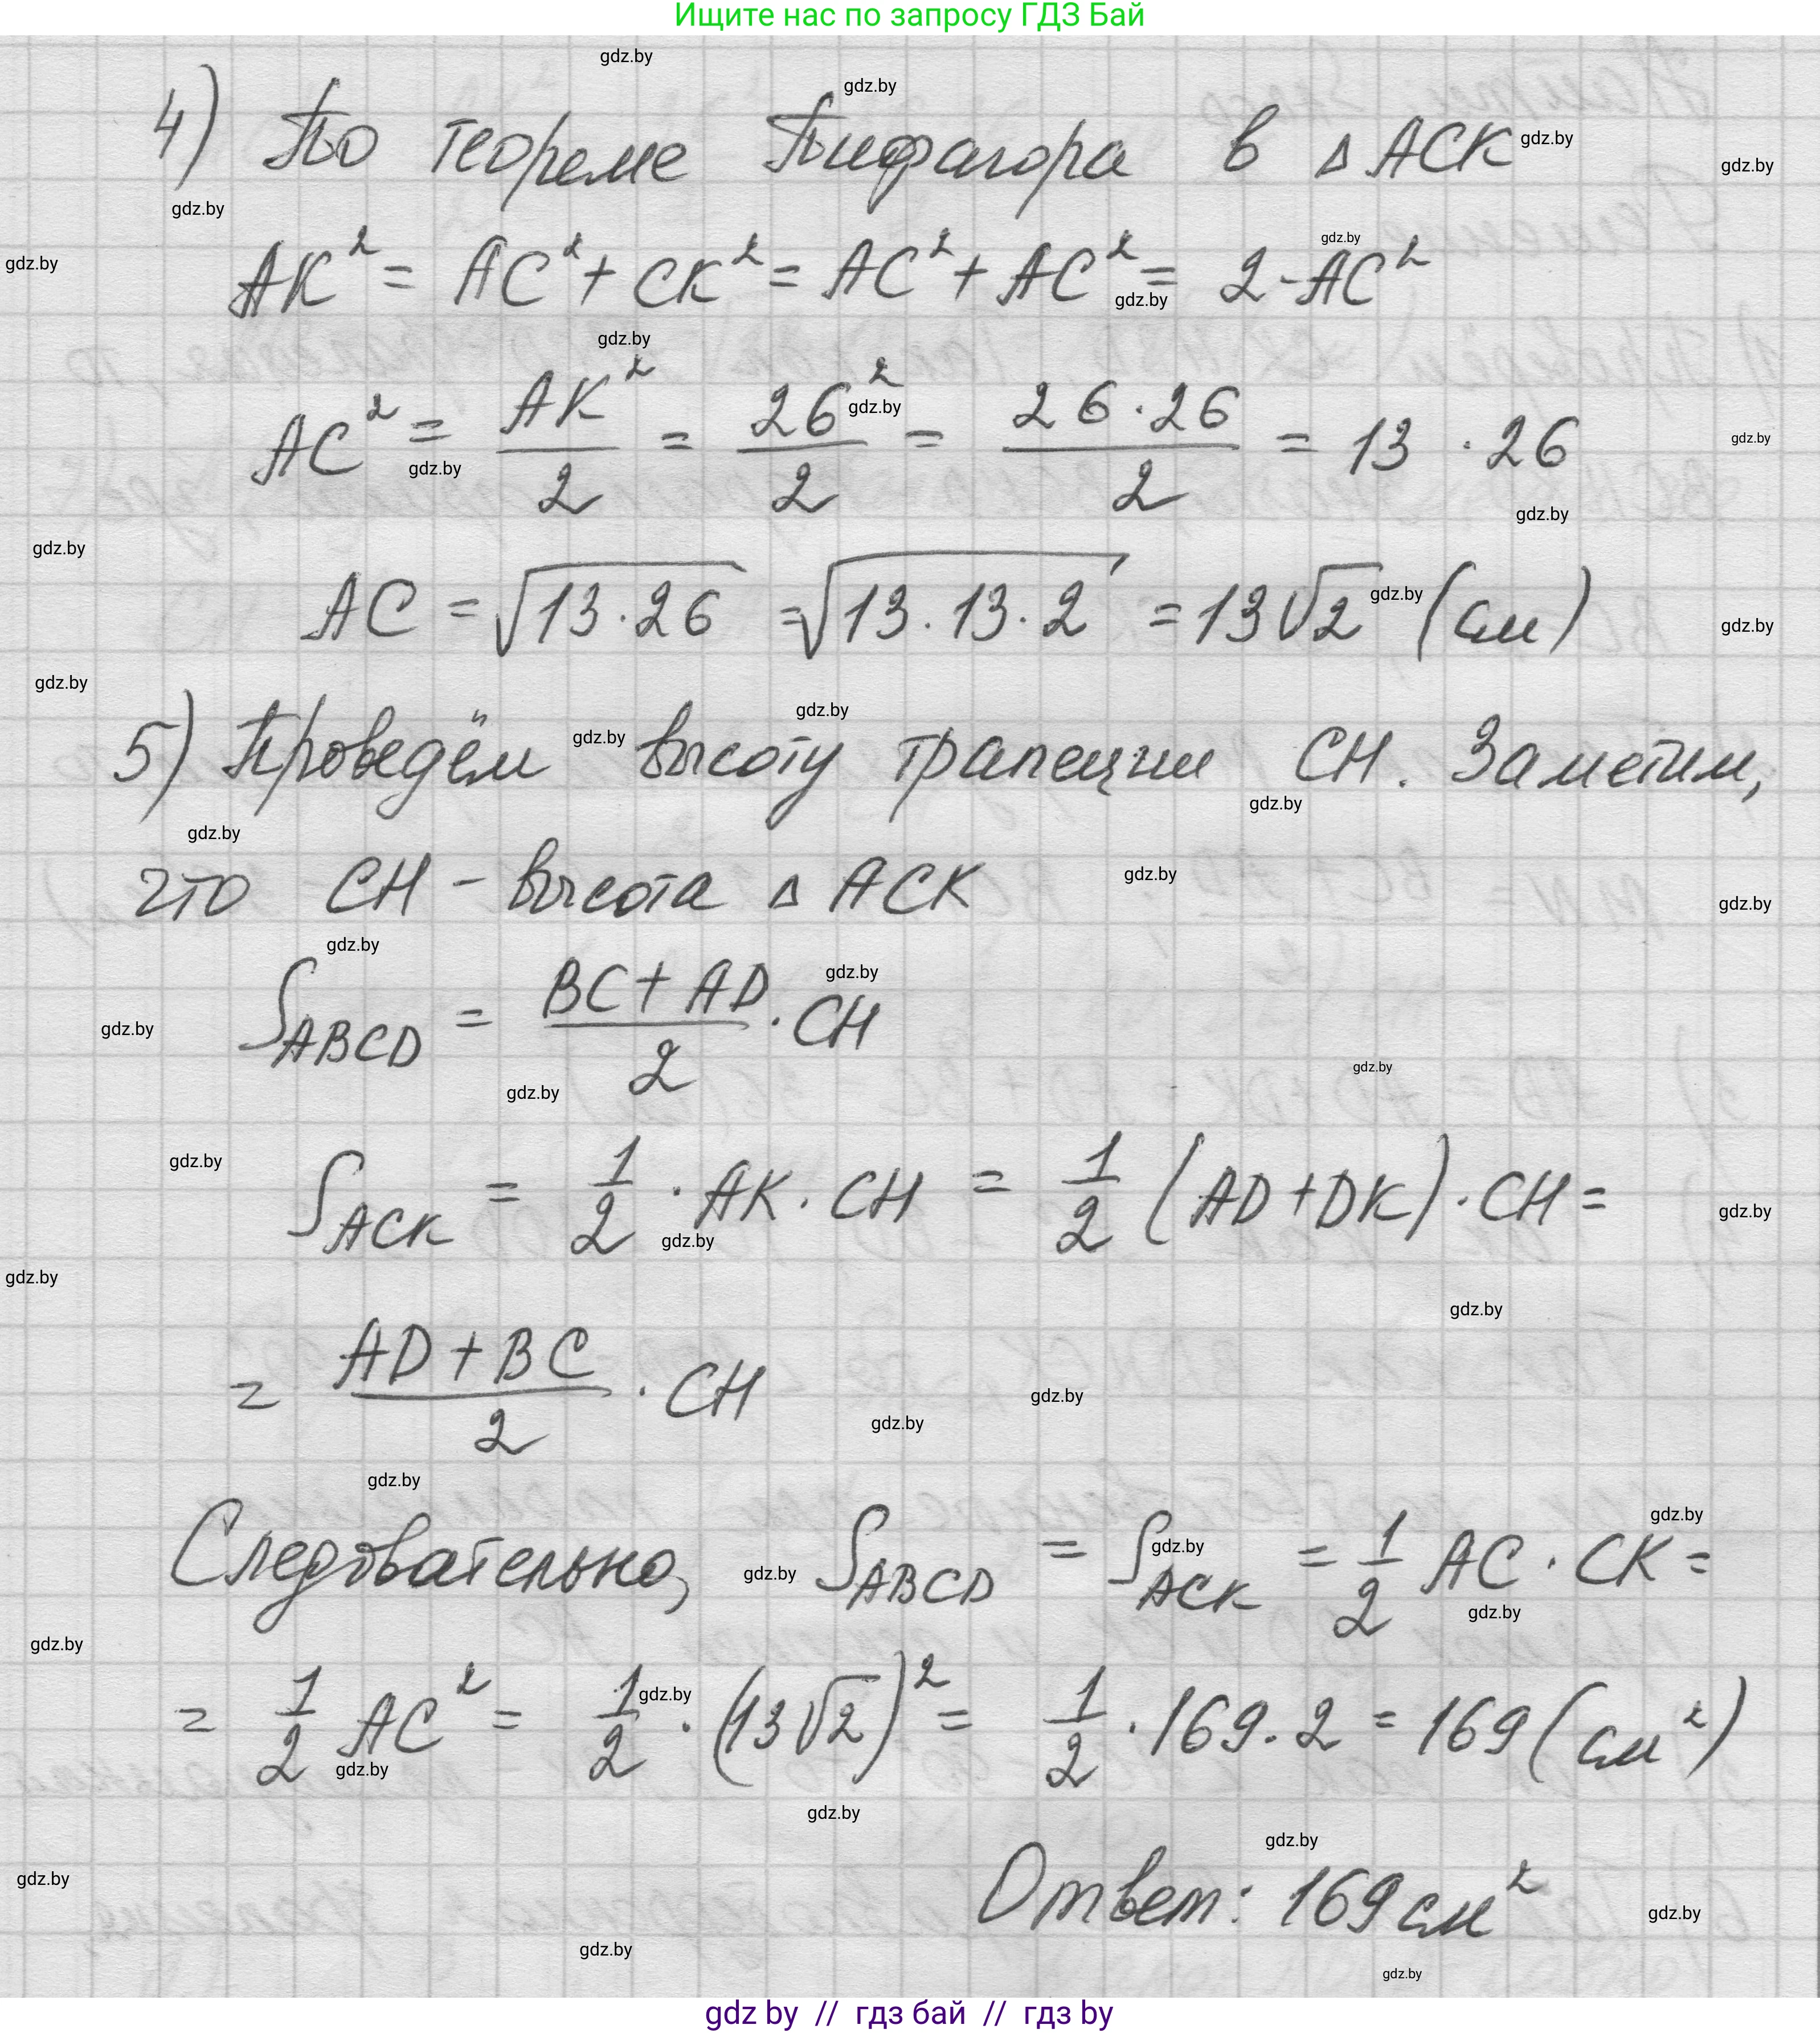 Ищите нас по запросу ГДЗ Бай
4) По теореме Пифагора в △ ACK
AK² = AC² + CK² = AC² + AC² = 2·AC²
AC² = AK²/2 = 26²/2 = 26·26/2 = 13 · 26
AC = √13·26 = √13·13·2 = 13√2 (см)
5) Проведём высоту трапеции CH. Заметим,
что CH - высота △ ACK
S_ABCD = BC + AD/2 · CH
S_ACK = 1/2 · AK · CH = 1/2 (AD + DK) · CH =
= AD + BC/2 · CH
Следовательно, S_ABCD = S_ACK = 1/2 AC · CK =
= 1/2 AC² = 1/2 · (13√2)² = 1/2 · 169 · 2 = 169 (см²)
Ответ: 169 см²
gdz by // гдз бай // гдз by